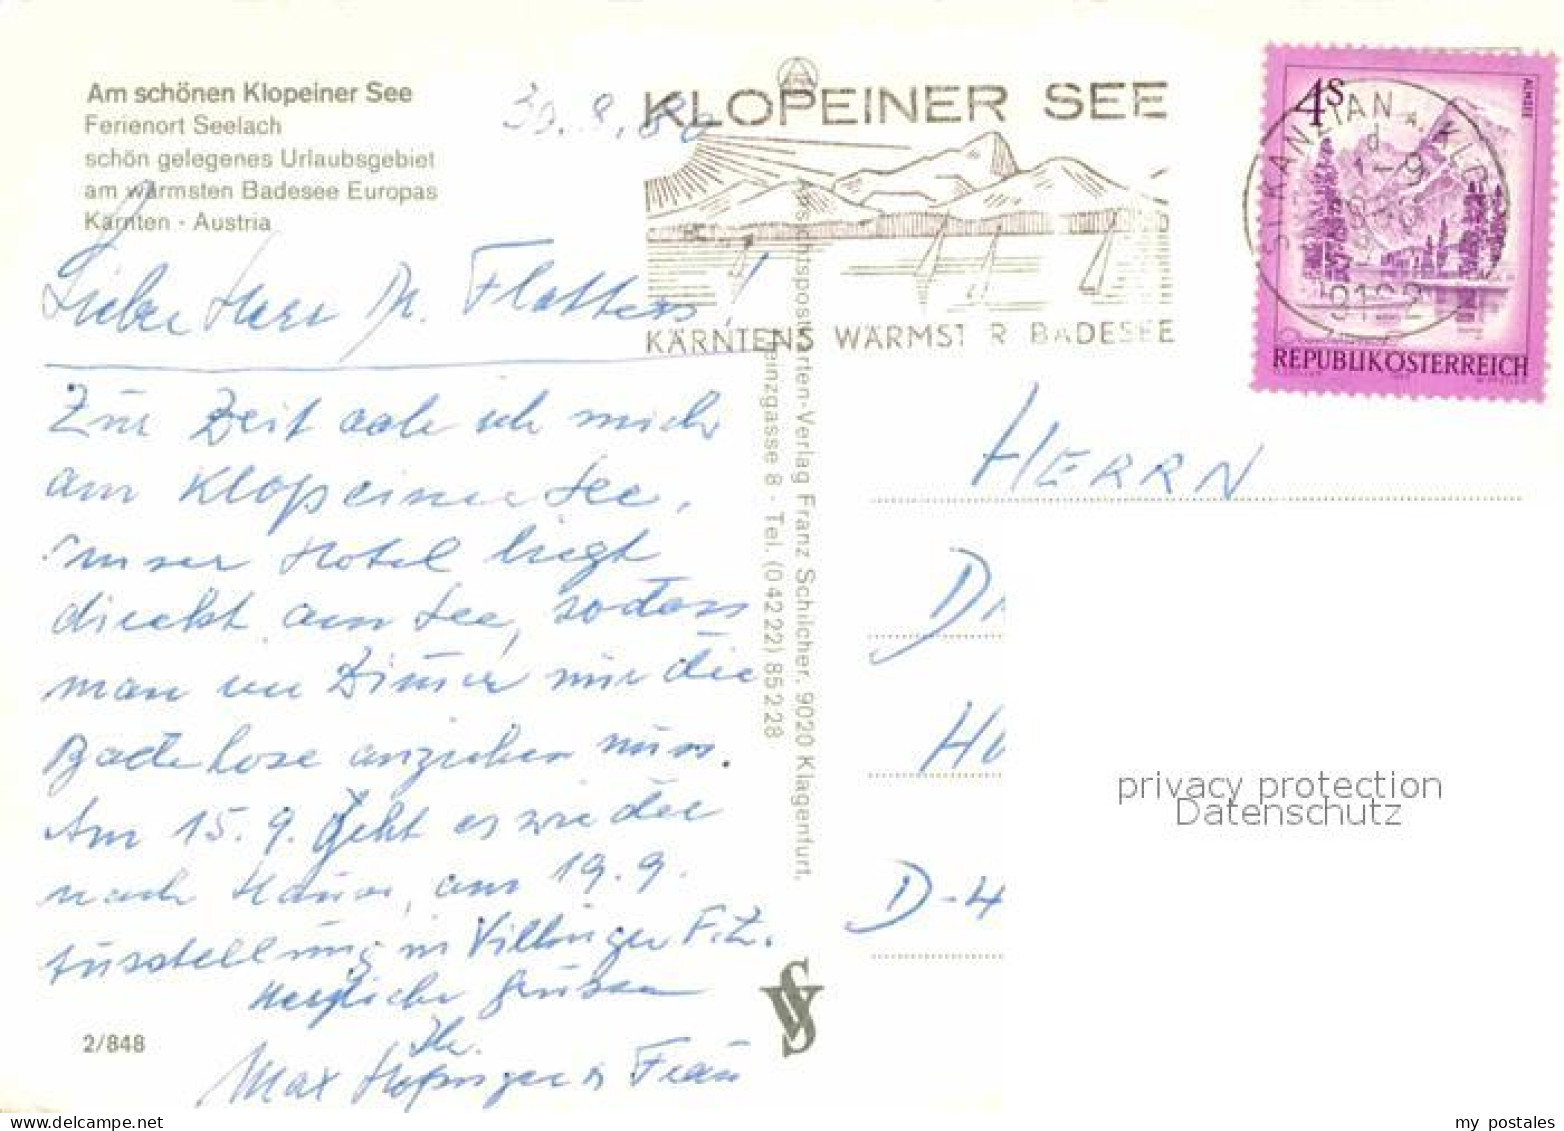 Am schönen Klopeiner See
Ferienort Seelach
schön gelegenes Urlaubsgebiet
am wärmsten Badesee Europas
Kärnten - Austria
30. 8. 80
KLOPEINER SEE
KÄRNTENS WÄRMST R BADESEE
ST. KANZIAN a. KLO
d
1-9
9122
4S
ALMSEE
REPUBLIK ÖSTERREICH
Lieber Herr Dr. Flatters!
Zur Zeit aale ich mich
am Klopeiner See,
unser Hotel liegt
direkt am See, sodass
man im Zimmer nur die
Badehose anziehen muss.
Am 15. 9. geht es wieder
nach Hause, am 19. 9.
Ausstellung in Villingen F.Z.
Herzliche Grüsse
Ihr
Max u Frau
2/848
Ansichtspostkarten-Verlag Franz Schilcher, 9020 Klagenfurt,
einzgasse 8 · Tel. (0 42 22) 85 2 28
SV
HERRN
D
H
D-4
privacy protection
Datenschutz
www.delcampe.net
my_postales